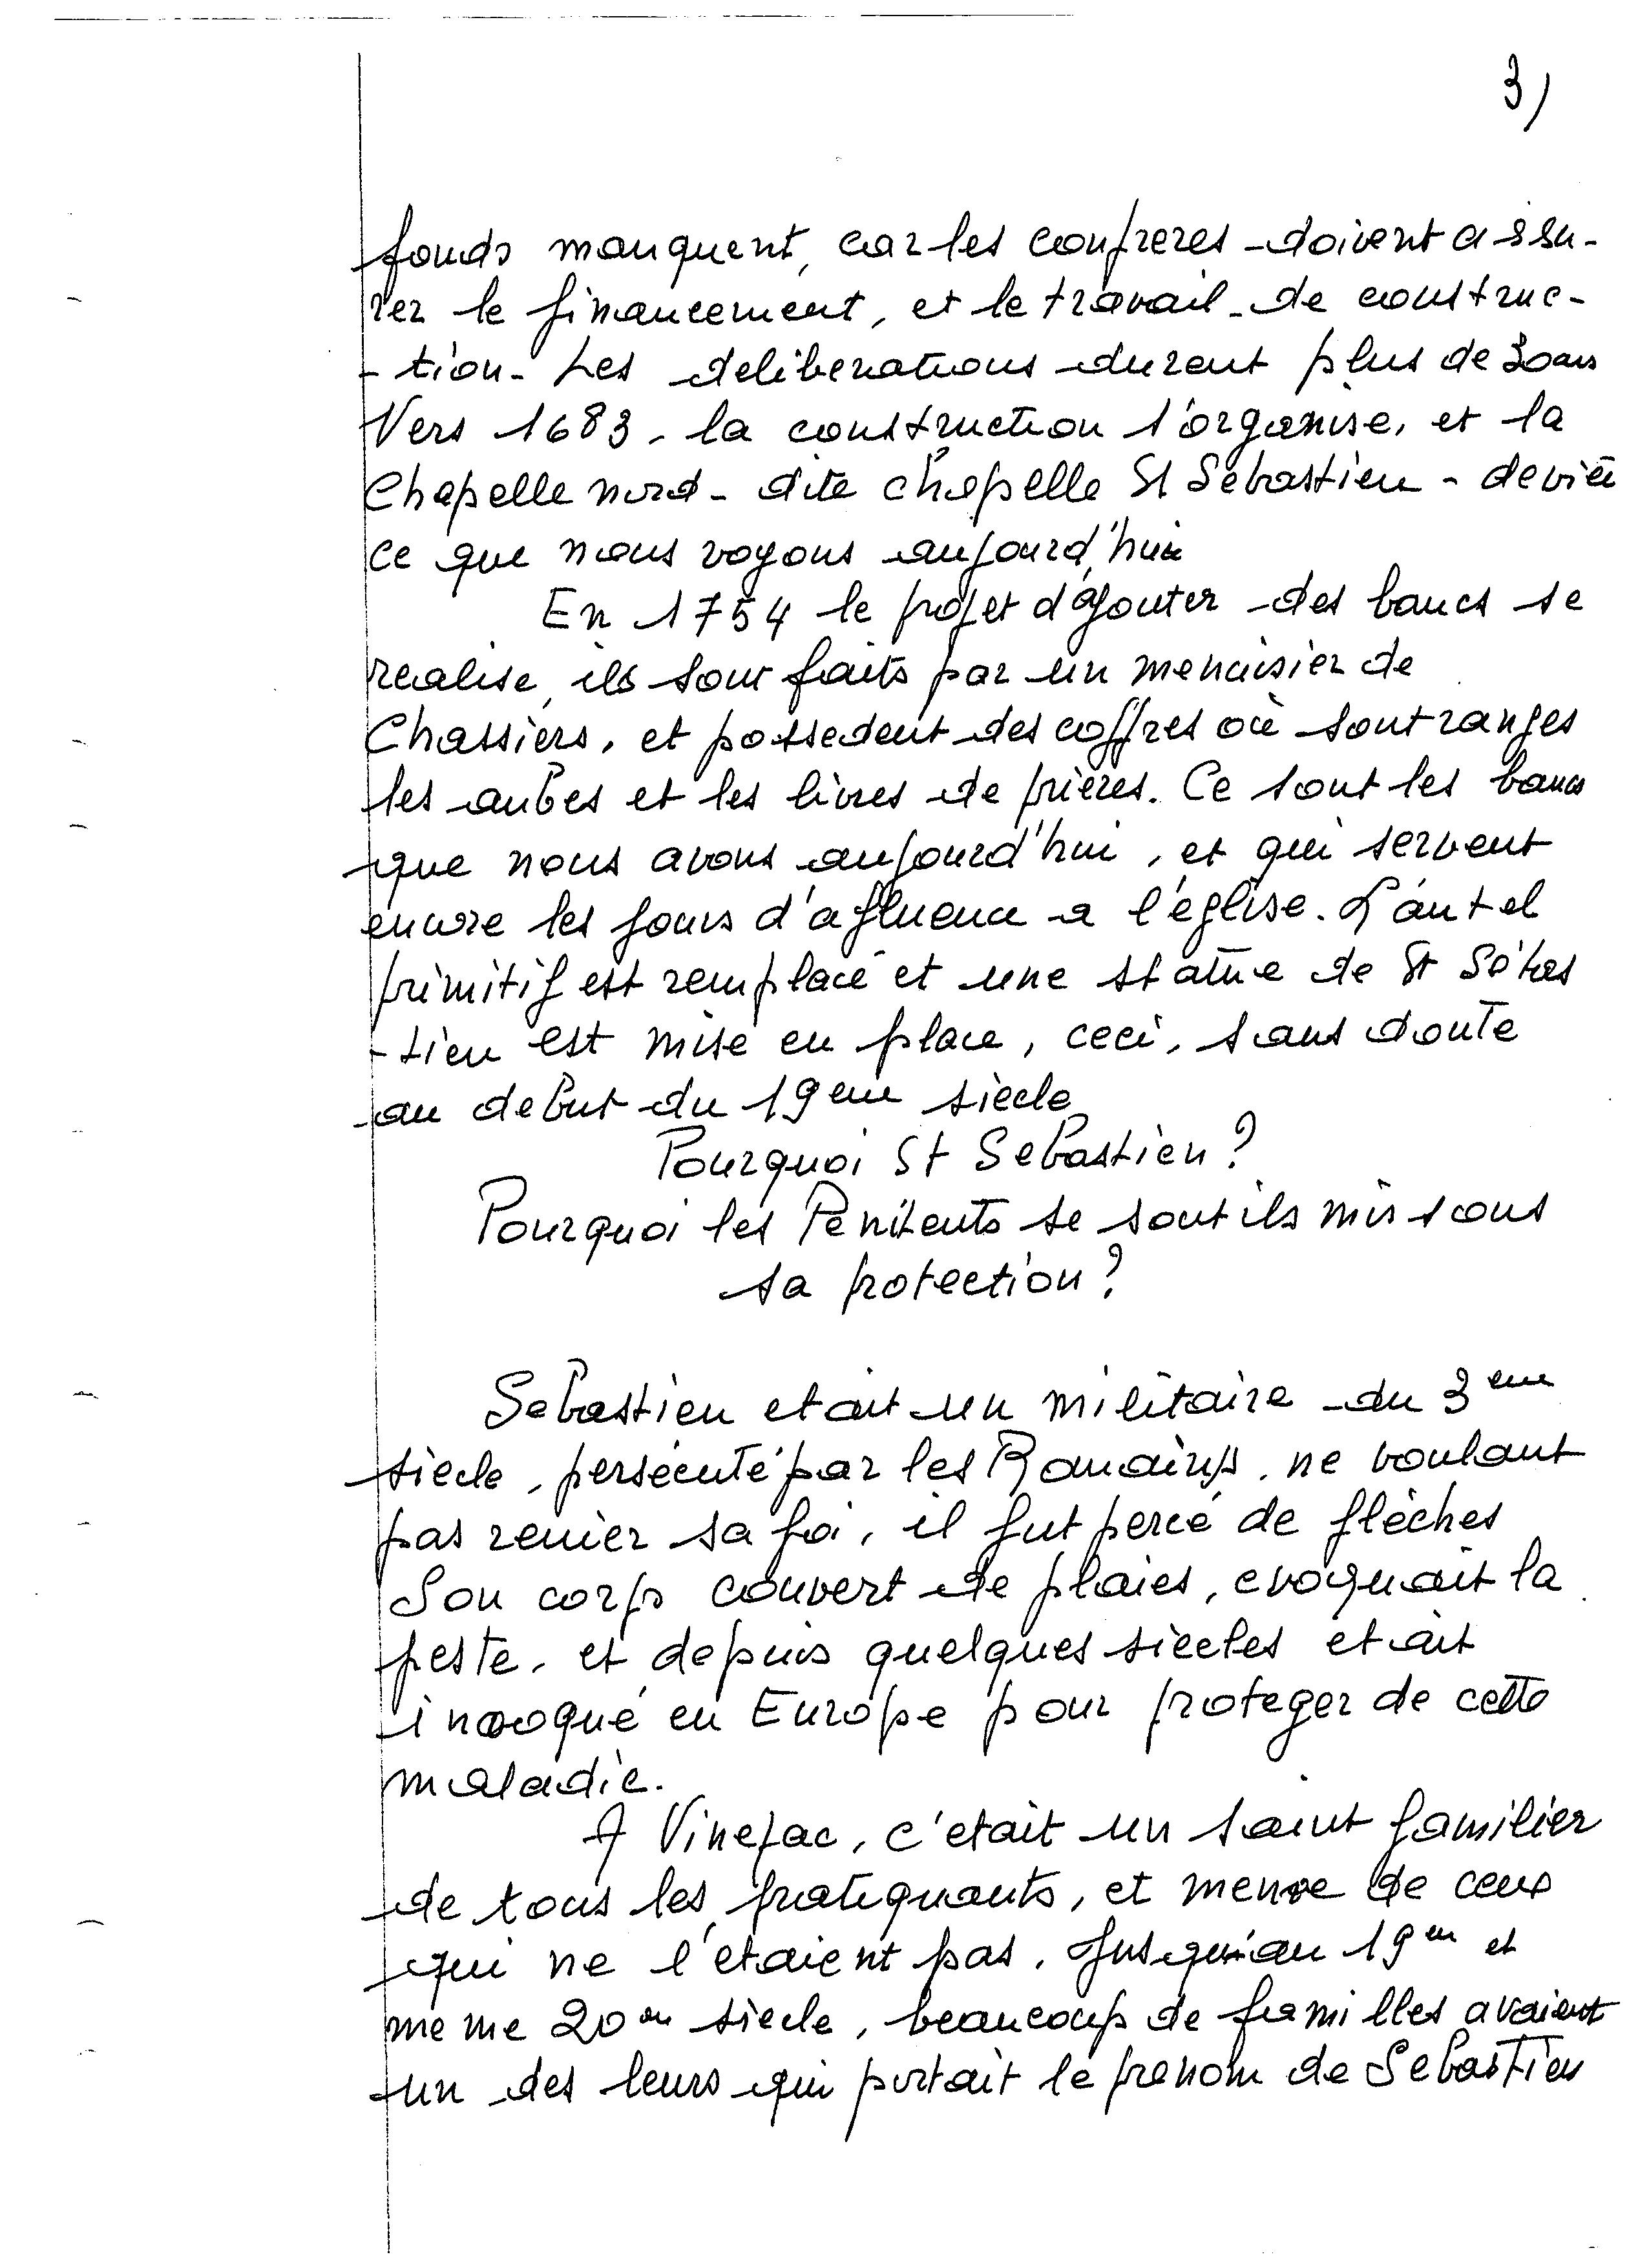 3)
fonds manquent, car les confreres doivent assu-
rer le financement, et le travail de construc-
-tion. Les deliberations durent plus de 30 ans
Vers 1683, la construction s'organise, et la
Chapelle nord - dite chapelle St Sebastien - devien
ce que nous voyons aujourd'hui
En 1754 le projet d'ajouter des bancs se
realise, ils sont faits par un menuisier de
Chassiers, et possedent des coffres où sont ranges
les aubes et les livres de prières. Ce sont les bancs
que nous avons aujourd'hui, et qui servent
encore les jours d'afluence a l'église. L'autel
primitif est remplacé et une statue de St Sébas
-tien est mise en place, ceci, sans doute
au debut du 19eme siècle
Pourquoi St Sebastien?
Pourquoi les Penitents se sont ils mis sous
sa protection?
Sebastien etait un militaire du 3eme
siecle, persécuté par les Romains, ne voulant
pas renier sa foi, il fut percé de flèches
Son corps couvert de plaies, evoquait la
peste, et depuis quelques siècles etait
invoqué en Europe pour proteger de cette
maladie.
A Vinezac, c'etait un saint familier
de tous les pratiquants, et meme de ceux
qui ne l'étaient pas. Jusqu'au 19em et
meme 20em siècle, beaucoup de familles avaient
un des leurs qui portait le prenom de Sebastien